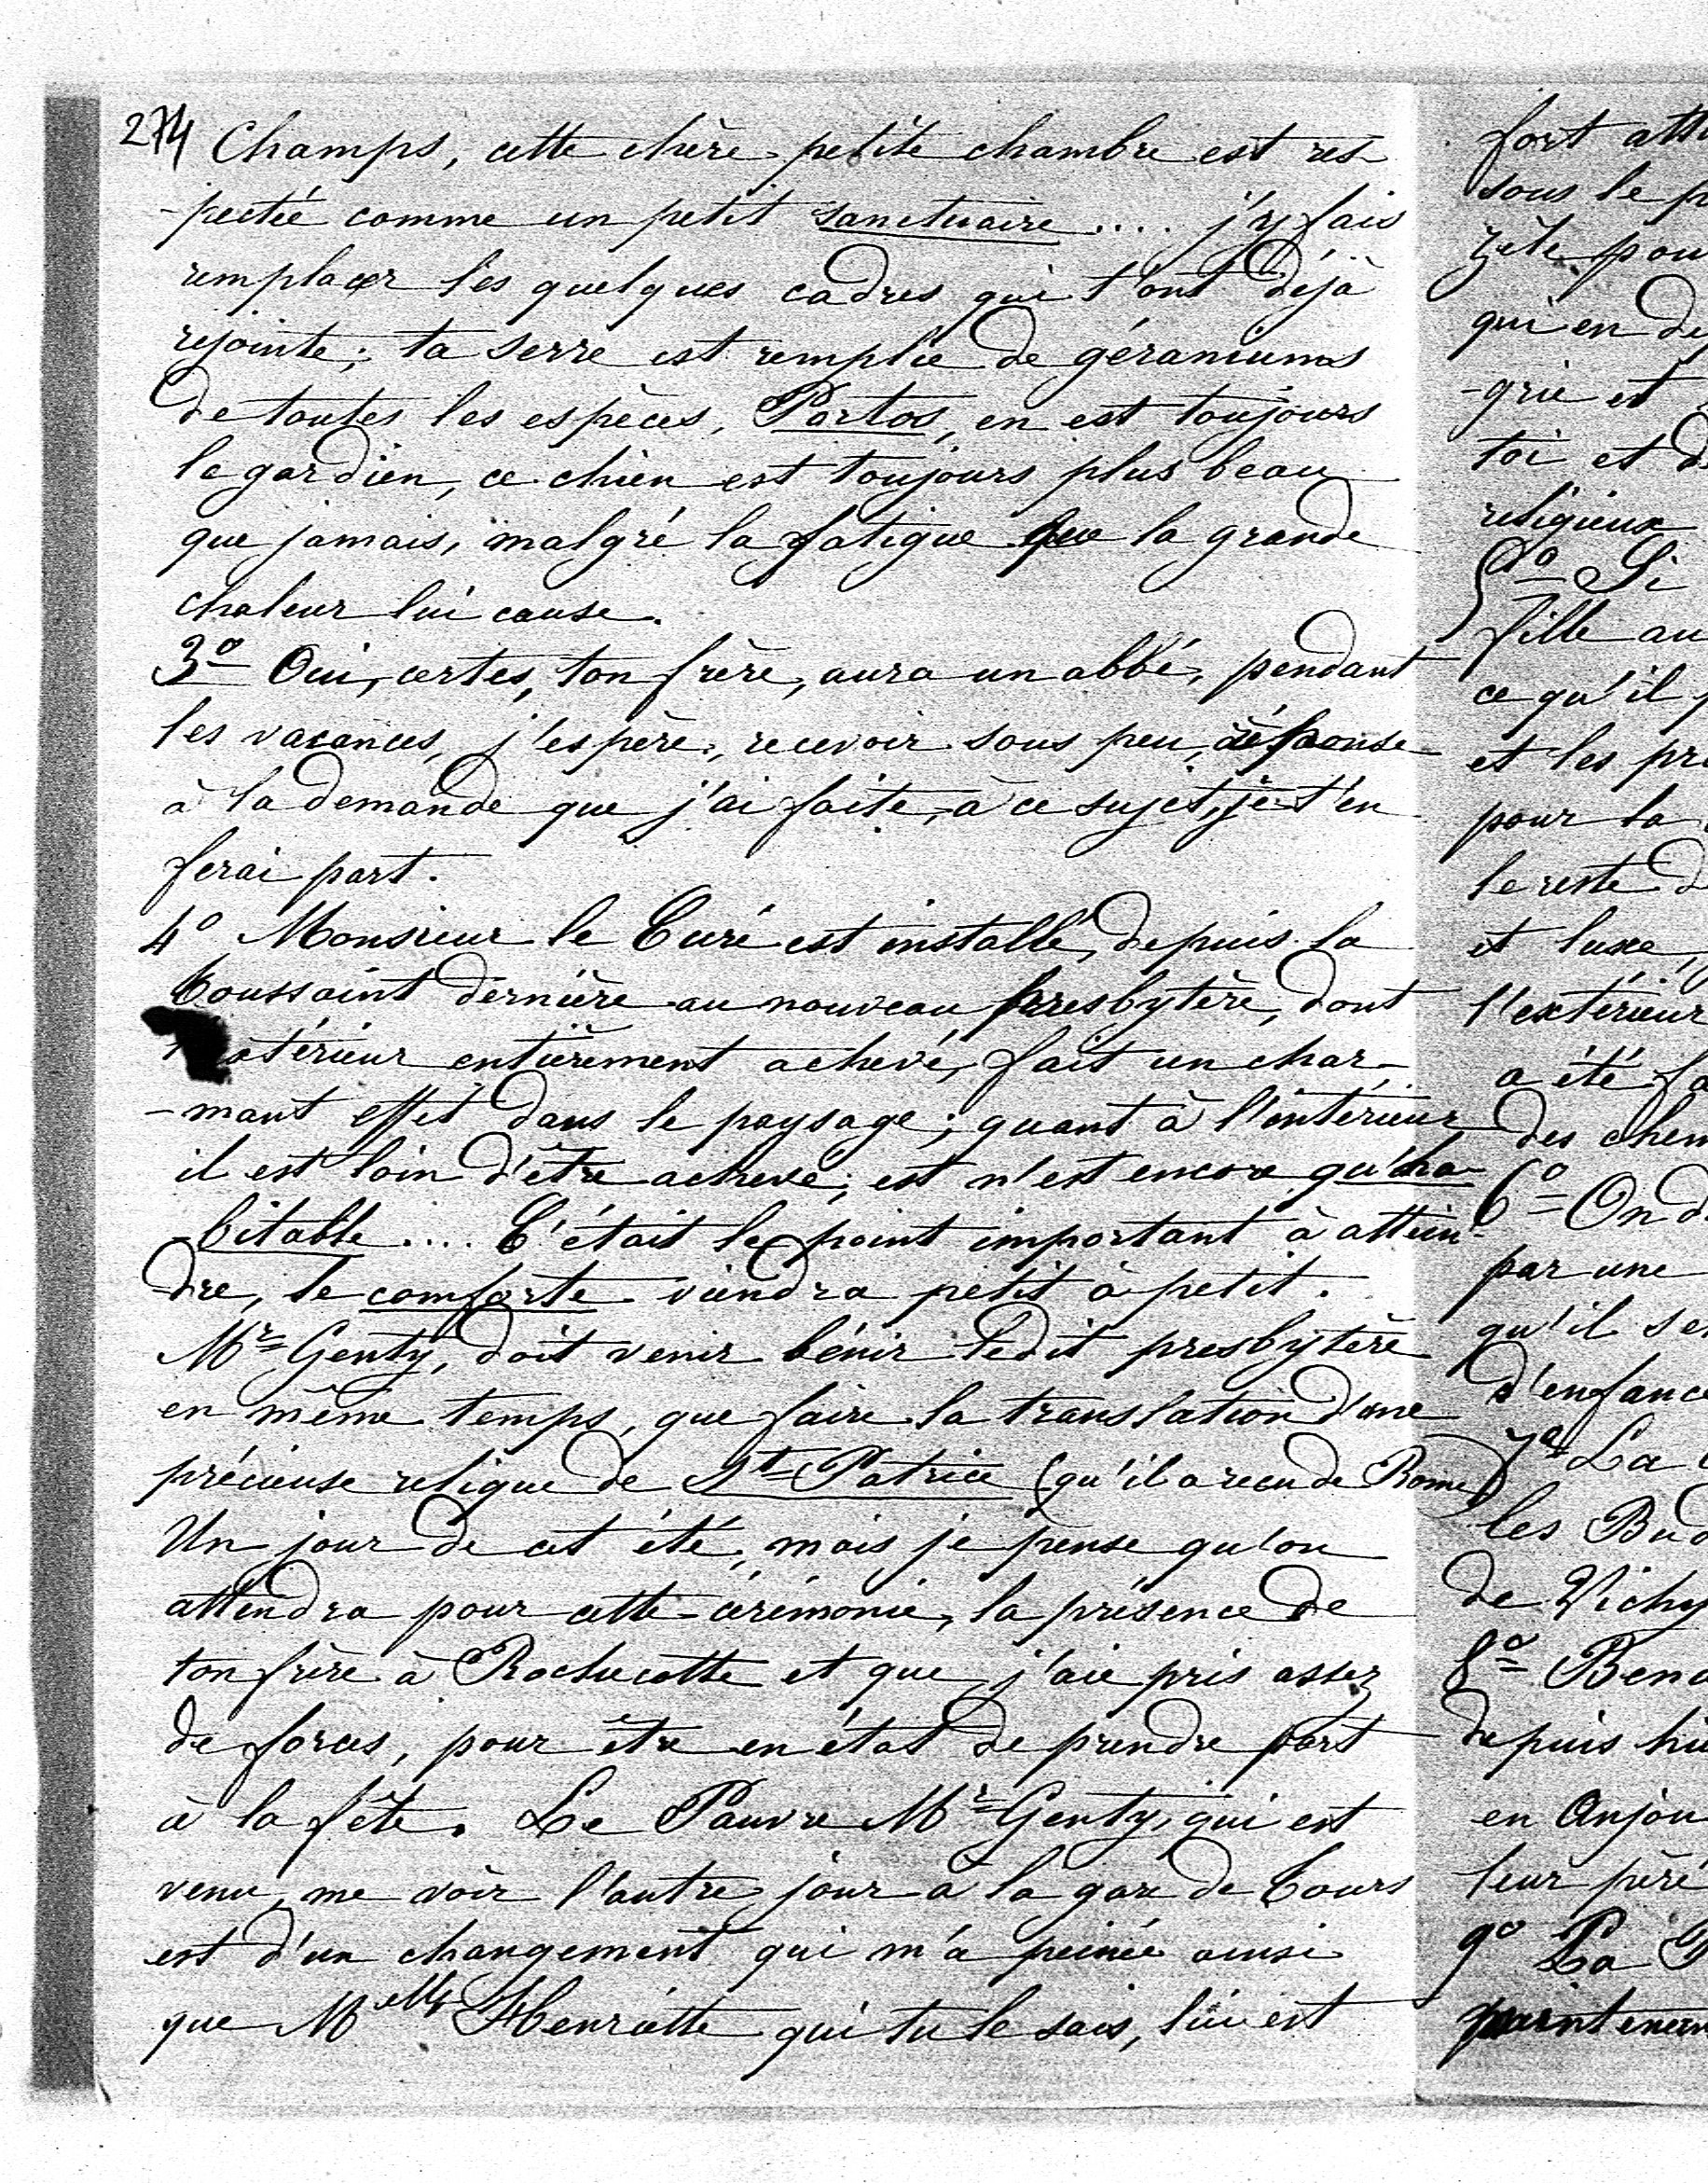 274
Champs, cette chère petite chambre est res-
-pectée comme un petit sanctuaire.... j'y fais
remplacer les quelques cadres qui t'ont déjà
rejointe; ta serre est remplie de géraniums
de toutes les espèces, Portos, en est toujours
le gardien, ce chien est toujours plus beau
que jamais, malgré la fatigue que la grande
chaleur lui cause.
3º Oui, certes, ton frère, aura un abbé, pendant
les vacances, j'espère, recevoir sous peu, réponse
à la demande que j'ai faite, à ce sujet, je t'en
ferai part.
4º Monsieur le Curé est installé, depuis la
Toussaint dernière au nouveau presbytère, dont
térieur entièrement achevé, fait un char-
-mant effet dans le paysage; quant à l'intérieur
il est loin d'être achevé; est n'est encore qu'ha-
-bitable.... C'était le point important à attein-
dre, le comforte viendra petit à petit.
Mr Genty, doit venir bénir ledit presbytère
en même temps, que faire la translation d'une
précieuse relique de St Patrice (qu'il a reçu de Rome)
Un jour de cet été, mais je pense qu'on
attendra pour cette cérémonie, la présence de
ton frère à Rochecotte et que j'aie pris assez
de forces, pour être en état de prendre part
à la fête. Le Pauvre Mr Genty, qui est
venu, me voir l'autre jour à la gare de Tours
est d'un changement qui m'a peinée ainsi
que Melle Henriette qui tu le sais, lui est
fort att
sous le p
zèle pou
qui en de
-grie et
toi et d
religieux
5º Si
fille au
ce qu'il p
et les pr
pour la
le reste d
et luxe,
l'extérieur
a été fa
des chem
6º On d
par une
qu'il se
d'enfance
7º La
les Bud
de Vichy
8º Bena
depuis hu
en Anjou
leur père
9º La P